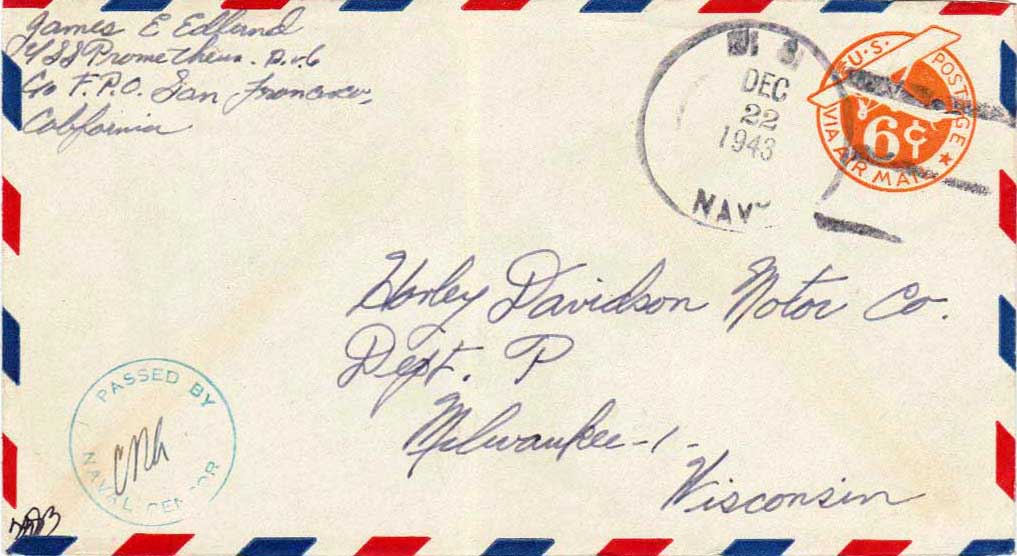 James E Edlund
USS Prometheus.
C/o F.P.O. San Francisco,
California
U. S.
DEC
22
1943
NAVY
U.S. POSTAGE
6¢
VIA AIR MAIL
Harley Davidson Motor Co.
Dept. P
Milwaukee-1-
Wisconsin
PASSED BY
NAVAL CENSOR